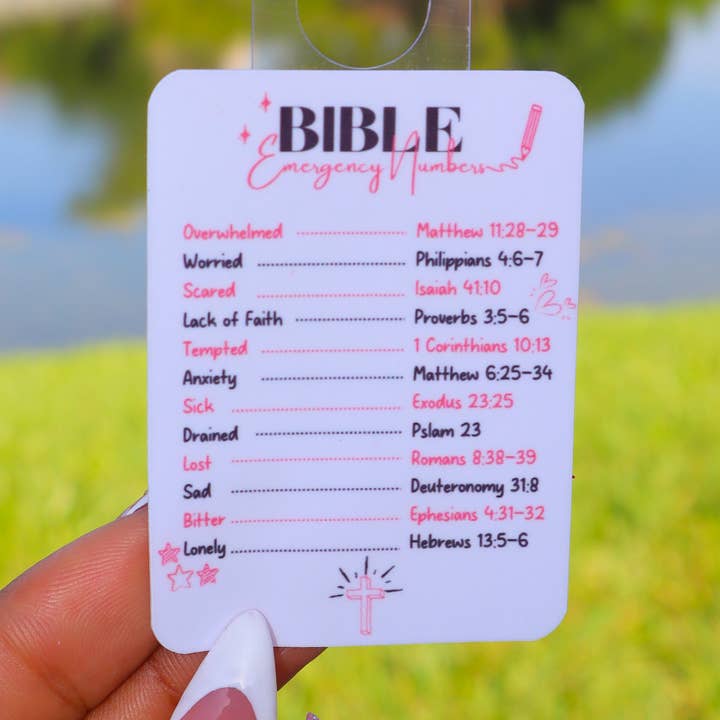 BIBLE
Emergency Numbers
Overwhelmed ................ Matthew 11:28-29
Worried ................ Philippians 4:6-7
Scared ................ Isaiah 41:10
Lack of Faith ................ Proverbs 3:5-6
Tempted ................ 1 Corinthians 10:13
Anxiety ................ Matthew 6:25-34
Sick ................ Exodus 23:25
Drained ................ Pslam 23
Lost ................ Romans 8:38-39
Sad ................ Deuteronomy 31:8
Bitter ................ Ephesians 4:31-32
Lonely ................ Hebrews 13:5-6